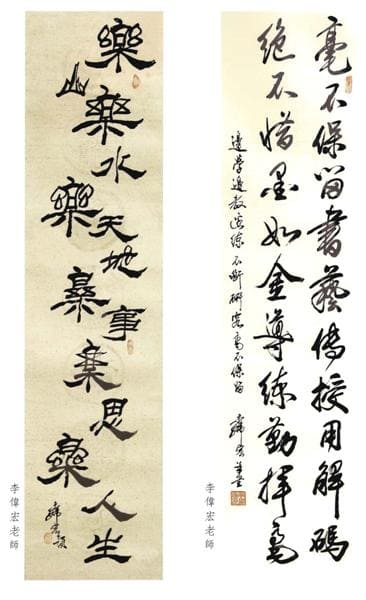 毫不保留書藝傳授用解碼
絕不惜墨如金導練勤揮毫
邊學邊教邊練不斷研究毫不保留 偉宏
李偉宏老師
樂山樂水樂天地樂事樂思樂人生
偉宏
李偉宏老師